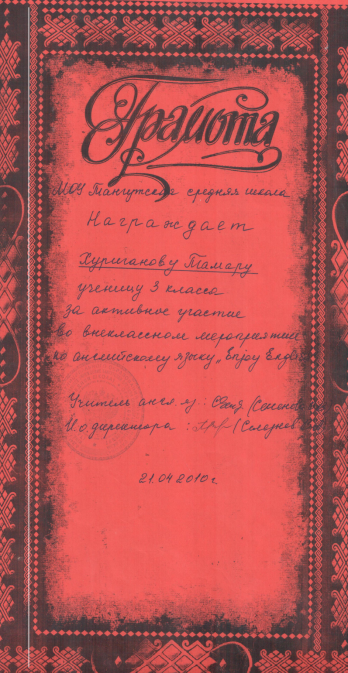 Грамота
МОУ Тангутская средняя школа
Награждает
Хуриганову Тамару
ученицу 3 класса
за активное участие
во внеклассном мероприятии
по английскому языку „Enjoy
Учитель англ яз:
И о директора:
21.04.2010г.